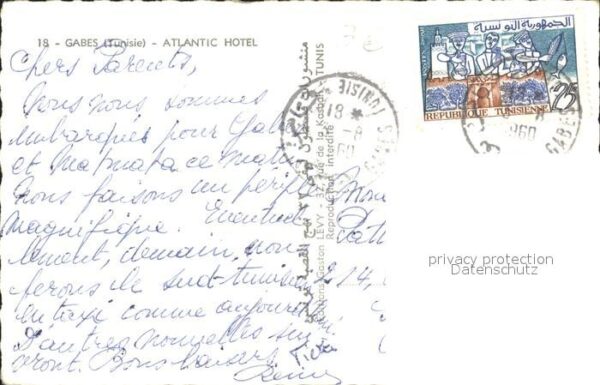 18 - GABES (Tunisie) - ATLANTIC HOTEL
Chers Parents,
Nous nous sommes
embarqués pour Gabès
et Matmata ce matin
Nous faisons un périple
magnifique. Eventuel
lement, demain, nous
ferons le sud-tunisien
en taxi comme aujourd'
D'autres nouvelles sui
vront. Bons baisers
214,
Editions Gaston LEVY - 37, rue de la Kasbah - TUNIS
Reproduction interdite
الجمهورية التونسية
REPUBLIQUE TUNISIENNE
25
TUNISIE
GABES
18 *
-8
1960
GABES
privacy protection
Datenschutz